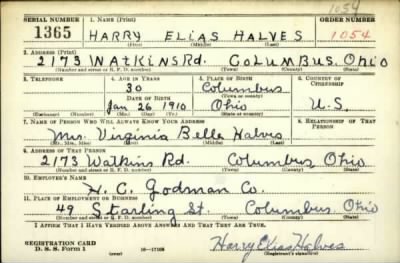 1054
SERIAL NUMBER 1. NAME (Print) ORDER NUMBER
1365 HARRY ELIAS HALVES 1054
(First) (Middle) (Last)
2. ADDRESS (Print)
2173 WATKINS Rd. COLUMBUS, Ohio
(Number and street or R. F. D. number) (Town) (County) (State)
3. TELEPHONE 4. AGE IN YEARS 5. PLACE OF BIRTH 6. COUNTRY OF CITIZENSHIP
30 Columbus
DATE OF BIRTH (Town or county)
Jan 26 1910 Ohio U.S.
(Exchange) (Number) (Mo.) (Day) (Yr.) (State or country)
7. NAME OF PERSON WHO WILL ALWAYS KNOW YOUR ADDRESS 8. RELATIONSHIP OF THAT PERSON
Mrs. Virginia Belle Halves
(Mr., Mrs., Miss) (First) (Middle) (Last)
9. ADDRESS OF THAT PERSON
2173 Watkins Rd. Columbus Ohio
(Number and street or R. F. D. number) (Town) (County) (State)
10. EMPLOYER'S NAME
H. C. Godman Co.
11. PLACE OF EMPLOYMENT OR BUSINESS
49 Starling St. Columbus Ohio
(Number and street or R. F. D. number) (Town) (County) (State)
I AFFIRM THAT I HAVE VERIFIED ABOVE ANSWERS AND THAT THEY ARE TRUE.
REGISTRATION CARD
D. S. S. Form 1 (over) Harry Elias Halves
(Registrant's signature)